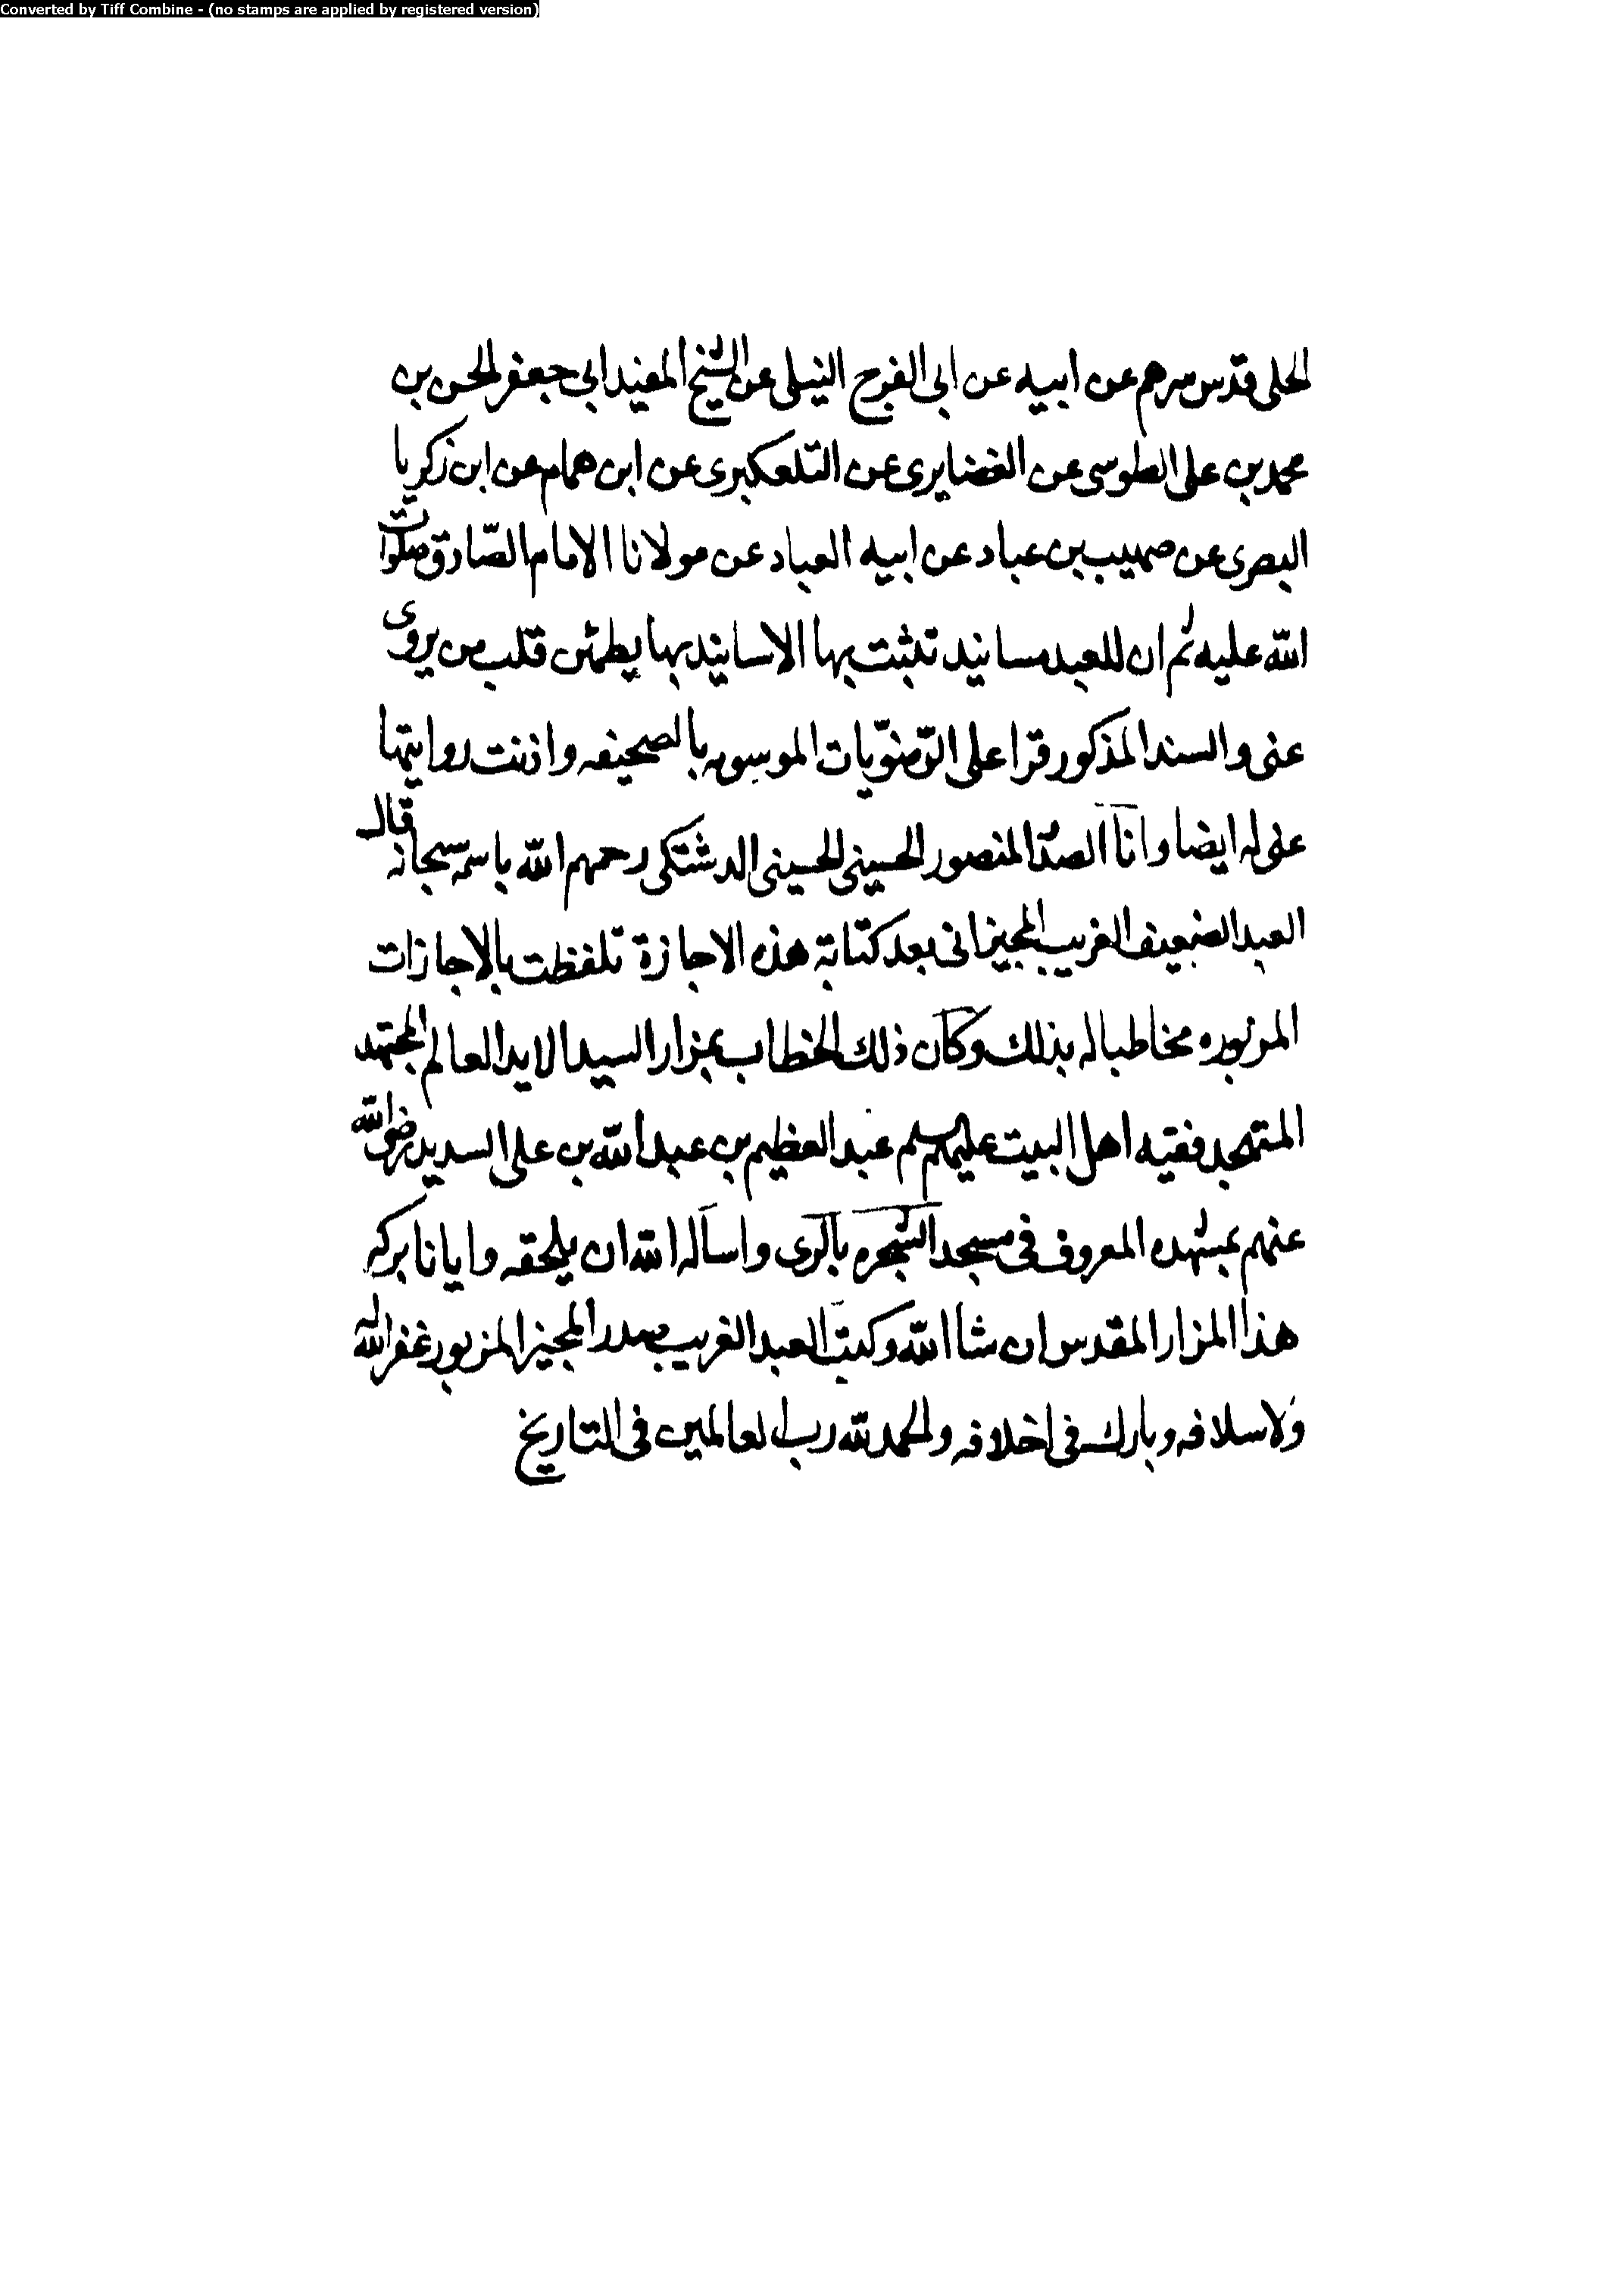 Converted by Tiff Combine - (no stamps are applied by registered version)
الحلی قدس سرهم عن ابیه عن ابی الفرج النیلی عن الشیخ المفید ابی جعفر الحسن بن
محمد بن علی الطوسی عن الغضایری عن التلعکبری عن ابن همام عن ابن زکریا
البصری عن صهیب بن عباد عن ابیه العباد عن مولانا الامام الصّادق صلوات
اللّه علیه ثم ان للعبد مسانید تثبت بها الاسانید بها یطمئن قلب من یروی
عنی والسند المذکور قرا علی الرّضویّات الموسویه بالصحیفه واذنت روایتها
عنی له ایضا وانا المنصور الحسینی الحسینی الدشتکی رحمهم اللّه باسمه سبحانه قال
العبد الضعیف الغریب المجیز انی بعد کتابة هذه الاجازة تلفظت بالاجازات
المزبوره مخاطبا له بذلک وکان ذلک الخطاب بمزار السید الاید العالم المجتهد
المتهجد فقیه اهل البیت علیهم سلم عبد العظیم بن عبد اللّه بن علی السدید رضی اللّه
عنهم بمشهده المعروف فی مسجد الشجره بالری واساله اللّه ان یلحقه وایانا برکه
هذا المزار المقدس ان شا اللّه وکتب العبد الغریب صدر المجیز المزبور غفر اللّه له
ولاسلافه وبارک فی اخلافه والحمد للّه رب العالمین فی التاریخ